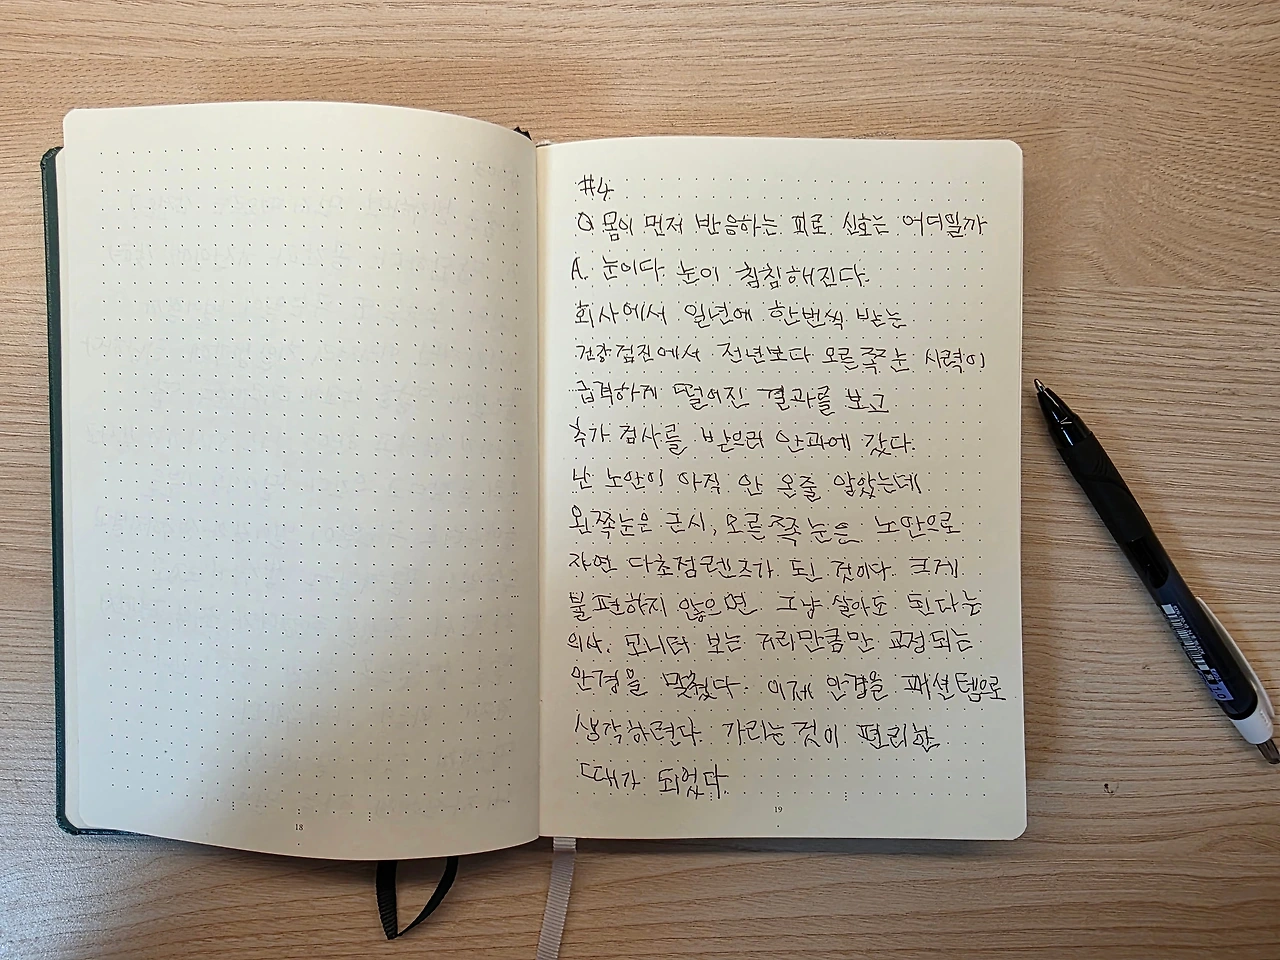 #4
Q 몸이 먼저 반응하는 피로 신호는 어디일까
A. 눈이다. 눈이 침침해진다.
회사에서 일년에 한번씩 받는
건강검진에서 전년보다 오른쪽눈 시력이
급격하게 떨어진 결과를 보고
추가 검사를 받으러 안과에 갔다.
난 노안이 아직 안 온줄 알았는데
왼쪽눈은 근시, 오른쪽눈은 노안으로
자연 다초점렌즈가 된 것이다. 크게
불편하지 않으면 그냥 살아도 된다는
의사. 모니터 보는 거리만큼만 교정되는
안경을 맞췄다. 이제 안경을 패션템으로
생각하련다. 가리는 것이 편리한
때가 되었다.
18
19